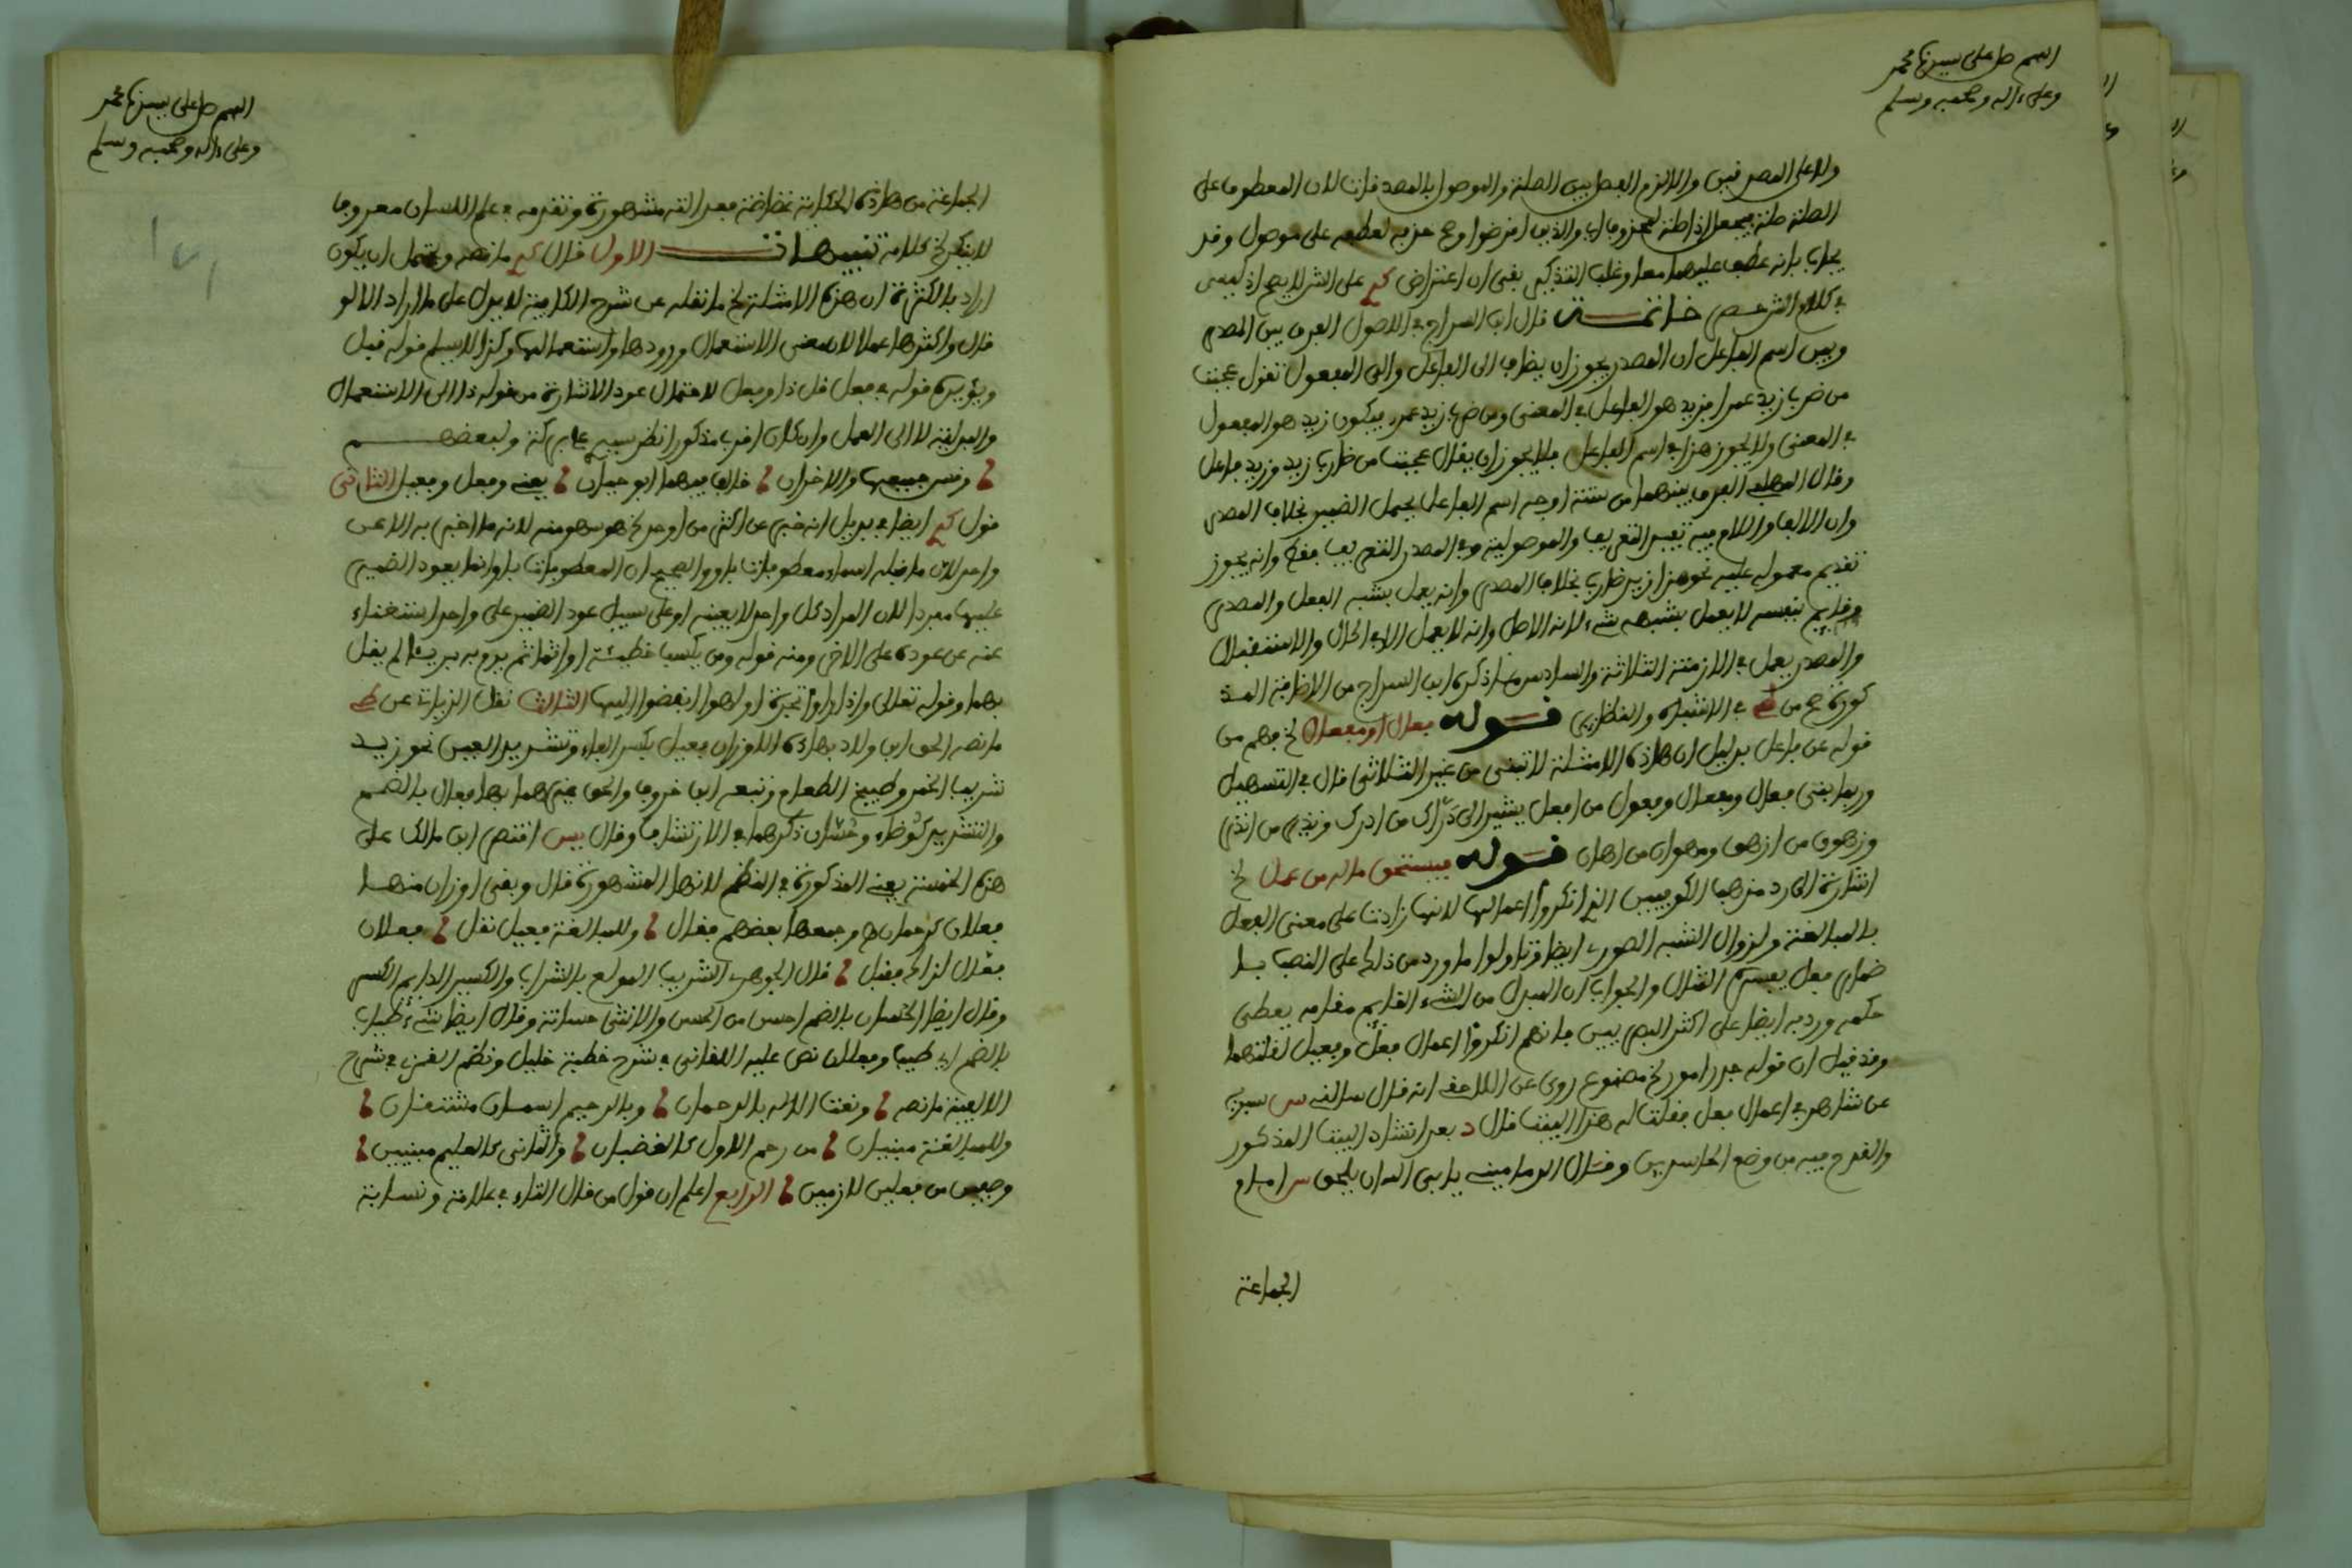 اللهم صل على سيدنا محمد
وعلى ءاله وصحبه وسلم
ولا على المصدقين والا لزم الفصل بين الصلة والموصول بالمصدقات لان المعطوف على
الصلة صلة فيجعل اذا صلة لمحذوف اي والذين اقرضوا وصح حذفه لعطفه على موصول وقد
يجاب بانه عطف عليهما معا وغلب التذكير بقي ان اعتراض على الش لا يصح اذ ليس
في كلام الش حصر خاتمة قال ابن السراج في الاصول الفرق بين المصدر
وبين اسم الفاعل ان المصدر يجوز ان يضاف الى الفاعل والى المفعول تقول عجبت
من ضرب زيد عمرا فزيد هو الفاعل في المعنى ومن ضرب زيد عمرو فيكون زيد هو المفعول
في المعنى ولا يجوز هذا في اسم الفاعل فلا يجوز ان يقال عجبت من ضارب زيد وزيد فاعل
وقال المهلبي الفرق بينهما من ستة اوجه اسم الفاعل يحمل الضمير بخلاف المصدر
وان الالف واللام فيه تفيد التعريف والموصولية وفي المصدر التعريف فقط وانه يجوز
تقديم معموله عليه نحو هذا زيد ضارب بخلاف المصدر وانه يعمل بشبه الفعل والمصدر
قايم بنفسه لا يعمل بشبهه شيء لانه الاصل وانه لا يعمل الا في الحال والاستقبال
والمصدر يعمل في الازمنة الثلاثة والسادس ما ذكره ابن السراج من الاضافة المذ
كورة من في الاشباه والنظاير قوله فعال او مفعال فهم من
قوله عن فاعل بدليل ان هاذه الامثلة لا تبنى من غير الثلاثي قال في التسهيل
وربما بني فعال ومفعال وفعول من افعل يشير الى درّاك من ادرك ونذير من انذر
وزهوق من ازهق ومهوان من اهان قوله فيستحق ماله من عمل
اشارة الى رد مذهب الكوفيين الذين انكروا اعمالها لانها زادت على معنى الفعل
بالمبالغة ولزوال الشبه الصوري ايضا وتاولوا ما ورد من ذلك على النصب با
ضمار فعل يفسره المثال والجواب ان المبدل من الشيء القايم مقامه يعطى
حكمه ورد به ايضا على اكثر البصريين فانهم انكروا اعمال فعل وفعيل لقلتهما
وقد قيل ان قوله حذر امورا مصنوع روى عن اللاحقي انه قال سالني س
عن شاهد في اعمال فعل فعملت له هذا البيت قال د بعد انشاد البيت المذكور
والقدح فيه من وضع الحاسدين وقال الدماميني يابى الله ان يلحق س امام
الجماعة
اللهم صل على سيدنا محمد
وعلى ءاله وصحبه وسلم
الجماعة من هاذه الحكاية غضاضة فعدالته مشهورة وتقدمه في علم اللسان معروف
لا ينكر كلامه تنبيهات الاول قال ما نصه ويحتمل ان يكون
اراد بالكثرة ان هذه الامثلة ما نقله عن شرح الكافية لا يدل على ما اراد اذ لو
قال واكثرها عملا لان معنى الاستعمال ورودها واستعمالها وكذا لا يسلم قوله قبل
ويؤيده قوله في فعل قل ذا وفعل لاحتمال عود الاشارة من قوله ذا الى الاستعمال
والمبالغة لا الى العمل وان كان اقرب مذكور انظر ولبعضهم
وقس جميعها والاخران خالف فيهما ابو حيان يعني وفعل وفعيل الثاني
قول ايضا في بديل انه خبر عن اكثر من اوحد هو سهو منه لانه ما اخبر به الا عن
واحد لان ما قبله اسماء معطوفات باو والصحيح ان المعطوفات باو انما يعود الضمير
عليها مفردا لان المراد كل واحد لا بعينه او على سبيل عود الضمير على واحد استغناء
عنه عن عوده على الاخر ومنه قوله ومن يكسب خطيئة او اثما ثم يرم به بريئا لم يقل
بهما وقوله تعالى واذا راوا تجارة او لهوا انفضوا اليها الثالث نقل الزيات عن
ما نصه الحق ابن ولاد بهاذه الاوزان فعيل بكسر الفاء وتشديد العين نحو زيد
شريب الخمر وطبيخ الطعام وتبعه ابن خروف والحق غيرهما بها فعال بالضم
والتشديد كوُضّاء وحُسّان ذكرهما في الارتشاف وقال يس اقتصر ابن مالك على
هذه الخمسة يعني المذكورة في النظم لانها المشهورة قال وبقي اوزان منها
فعلان كرحمان وجمعها بعضهم فقال وللمبالغة فعيل نقل فعلان
فعال لزاك فقبل قال الجوهري الشريب المولع بالشراب والكسير الدايم الكسر
وقال ايضا الحسان بالضم احسن من الحسن والانثى حسانة وقال ايضا شيء طياب
بالضم اي طيب وفعلان نص عليه اللقاني في شرح خطبة خليل ونظم الغزي في شرح
الالفية ما نصه ونعت الاله بالرحمان وبالرحيم اسمان مشتقان
وللمبالغة مبنيان من رحم الاول كالغضبان والثاني كالعليم مبنيين
وصيغن من فعلين لازمين الرابع اعلم ان قول من قال التاء في علامة ونسابة